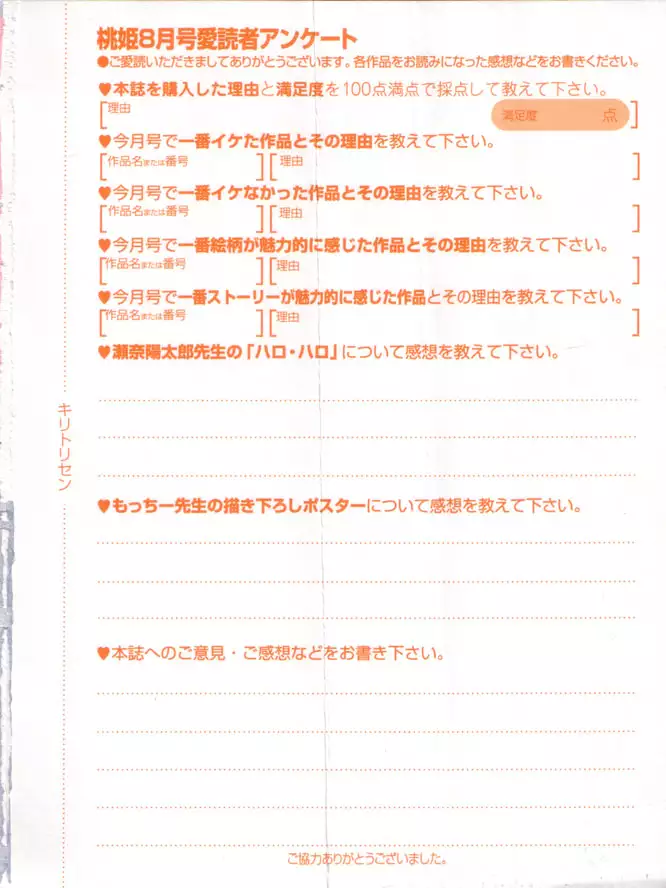 桃姫8月号愛読者アンケート
●ご愛読いただきましてありがとうございます。各作品をお読みになった感想などをお書きください。
♥本誌を購入した理由と満足度を100点満点で採点して教えて下さい。
理由 満足度 点
♥今月号で一番イケた作品とその理由を教えて下さい。
作品名または番号 理由
♥今月号で一番イケなかった作品とその理由を教えて下さい。
作品名または番号 理由
♥今月号で一番絵柄が魅力的に感じた作品とその理由を教えて下さい。
作品名または番号 理由
♥今月号で一番ストーリーが魅力的に感じた作品とその理由を教えて下さい。
作品名または番号 理由
♥瀬奈陽太郎先生の「ハロ・ハロ」について感想を教えて下さい。
キリトリセン
♥もっちー先生の描き下ろしポスターについて感想を教えて下さい。
♥本誌へのご意見・ご感想などをお書き下さい。
ご協力ありがとうございました。